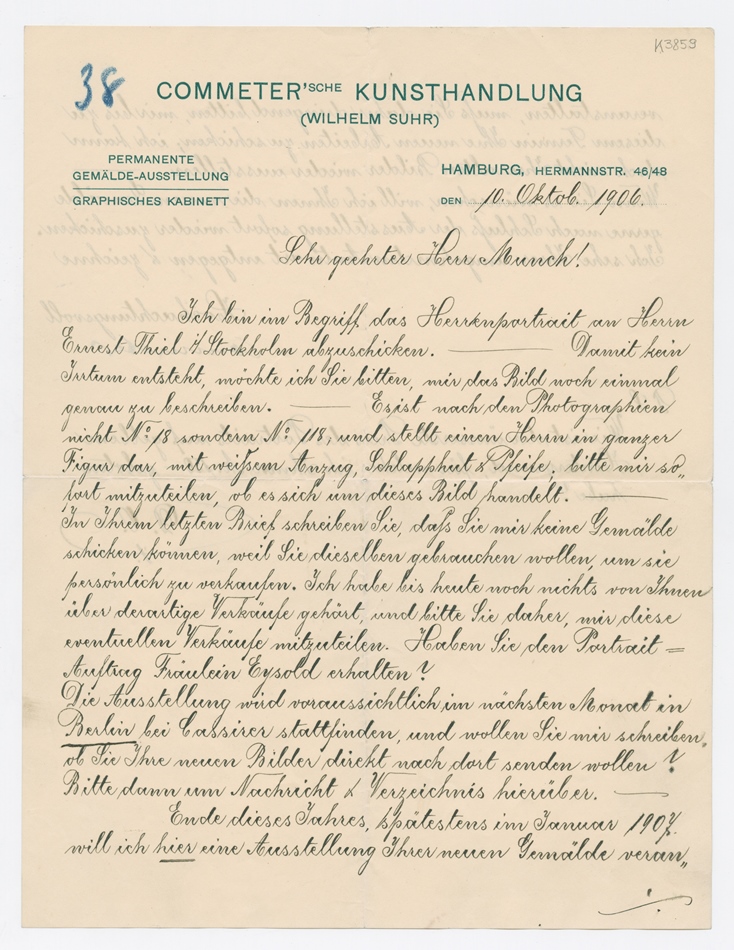 K3859
38
COMMETER'SCHE KUNSTHANDLUNG
(WILHELM SUHR)
PERMANENTE
GEMÄLDE-AUSSTELLUNG
GRAPHISCHES KABINETT
HAMBURG, HERMANNSTR. 46/48
DEN 10. Oktob. 1906.
Sehr geehrter Herr Munch!
Ich bin im Begriff das Herrenportrait an Herrn
Ernest Thiel i/ Stockholm abzuschicken. — Damit kein
Irrtum entsteht, möchte ich Sie bitten, mir das Bild noch einmal
genau zu beschreiben. — Es ist nach den Photographien
nicht No 18 sondern No 118, und stellt einen Herrn in ganzer
Figur dar, mit weißem Anzug, Schlapphut & Pfeife; bitte mir so„
fort mitzuteilen, ob es sich um dieses Bild handelt. —
In Ihrem letzten Brief schreiben Sie, daß Sie mir keine Gemälde
schicken können, weil Sie dieselben gebrauchen wollen, um sie
persönlich zu verkaufen. Ich habe bis heute noch nichts von Ihnen
über derartige Verkäufe gehört, und bitte Sie daher, mir diese
eventuellen Verkäufe mitzuteilen. Haben Sie den Portrait=
Auftrag Fräulein Eysold erhalten?
Die Ausstellung wird voraussichtlich im nächsten Monat in
Berlin bei Cassirer stattfinden, und wollen Sie mir schreiben,
ob Sie Ihre neuen Bilder direkt nach dort senden wollen?
Bitte dann um Nachricht & Verzeichnis hierüber. —
Ende dieses Jahres, spätestens im Januar 1907.
will ich hier eine Ausstellung Ihrer neuen Gemälde veran„